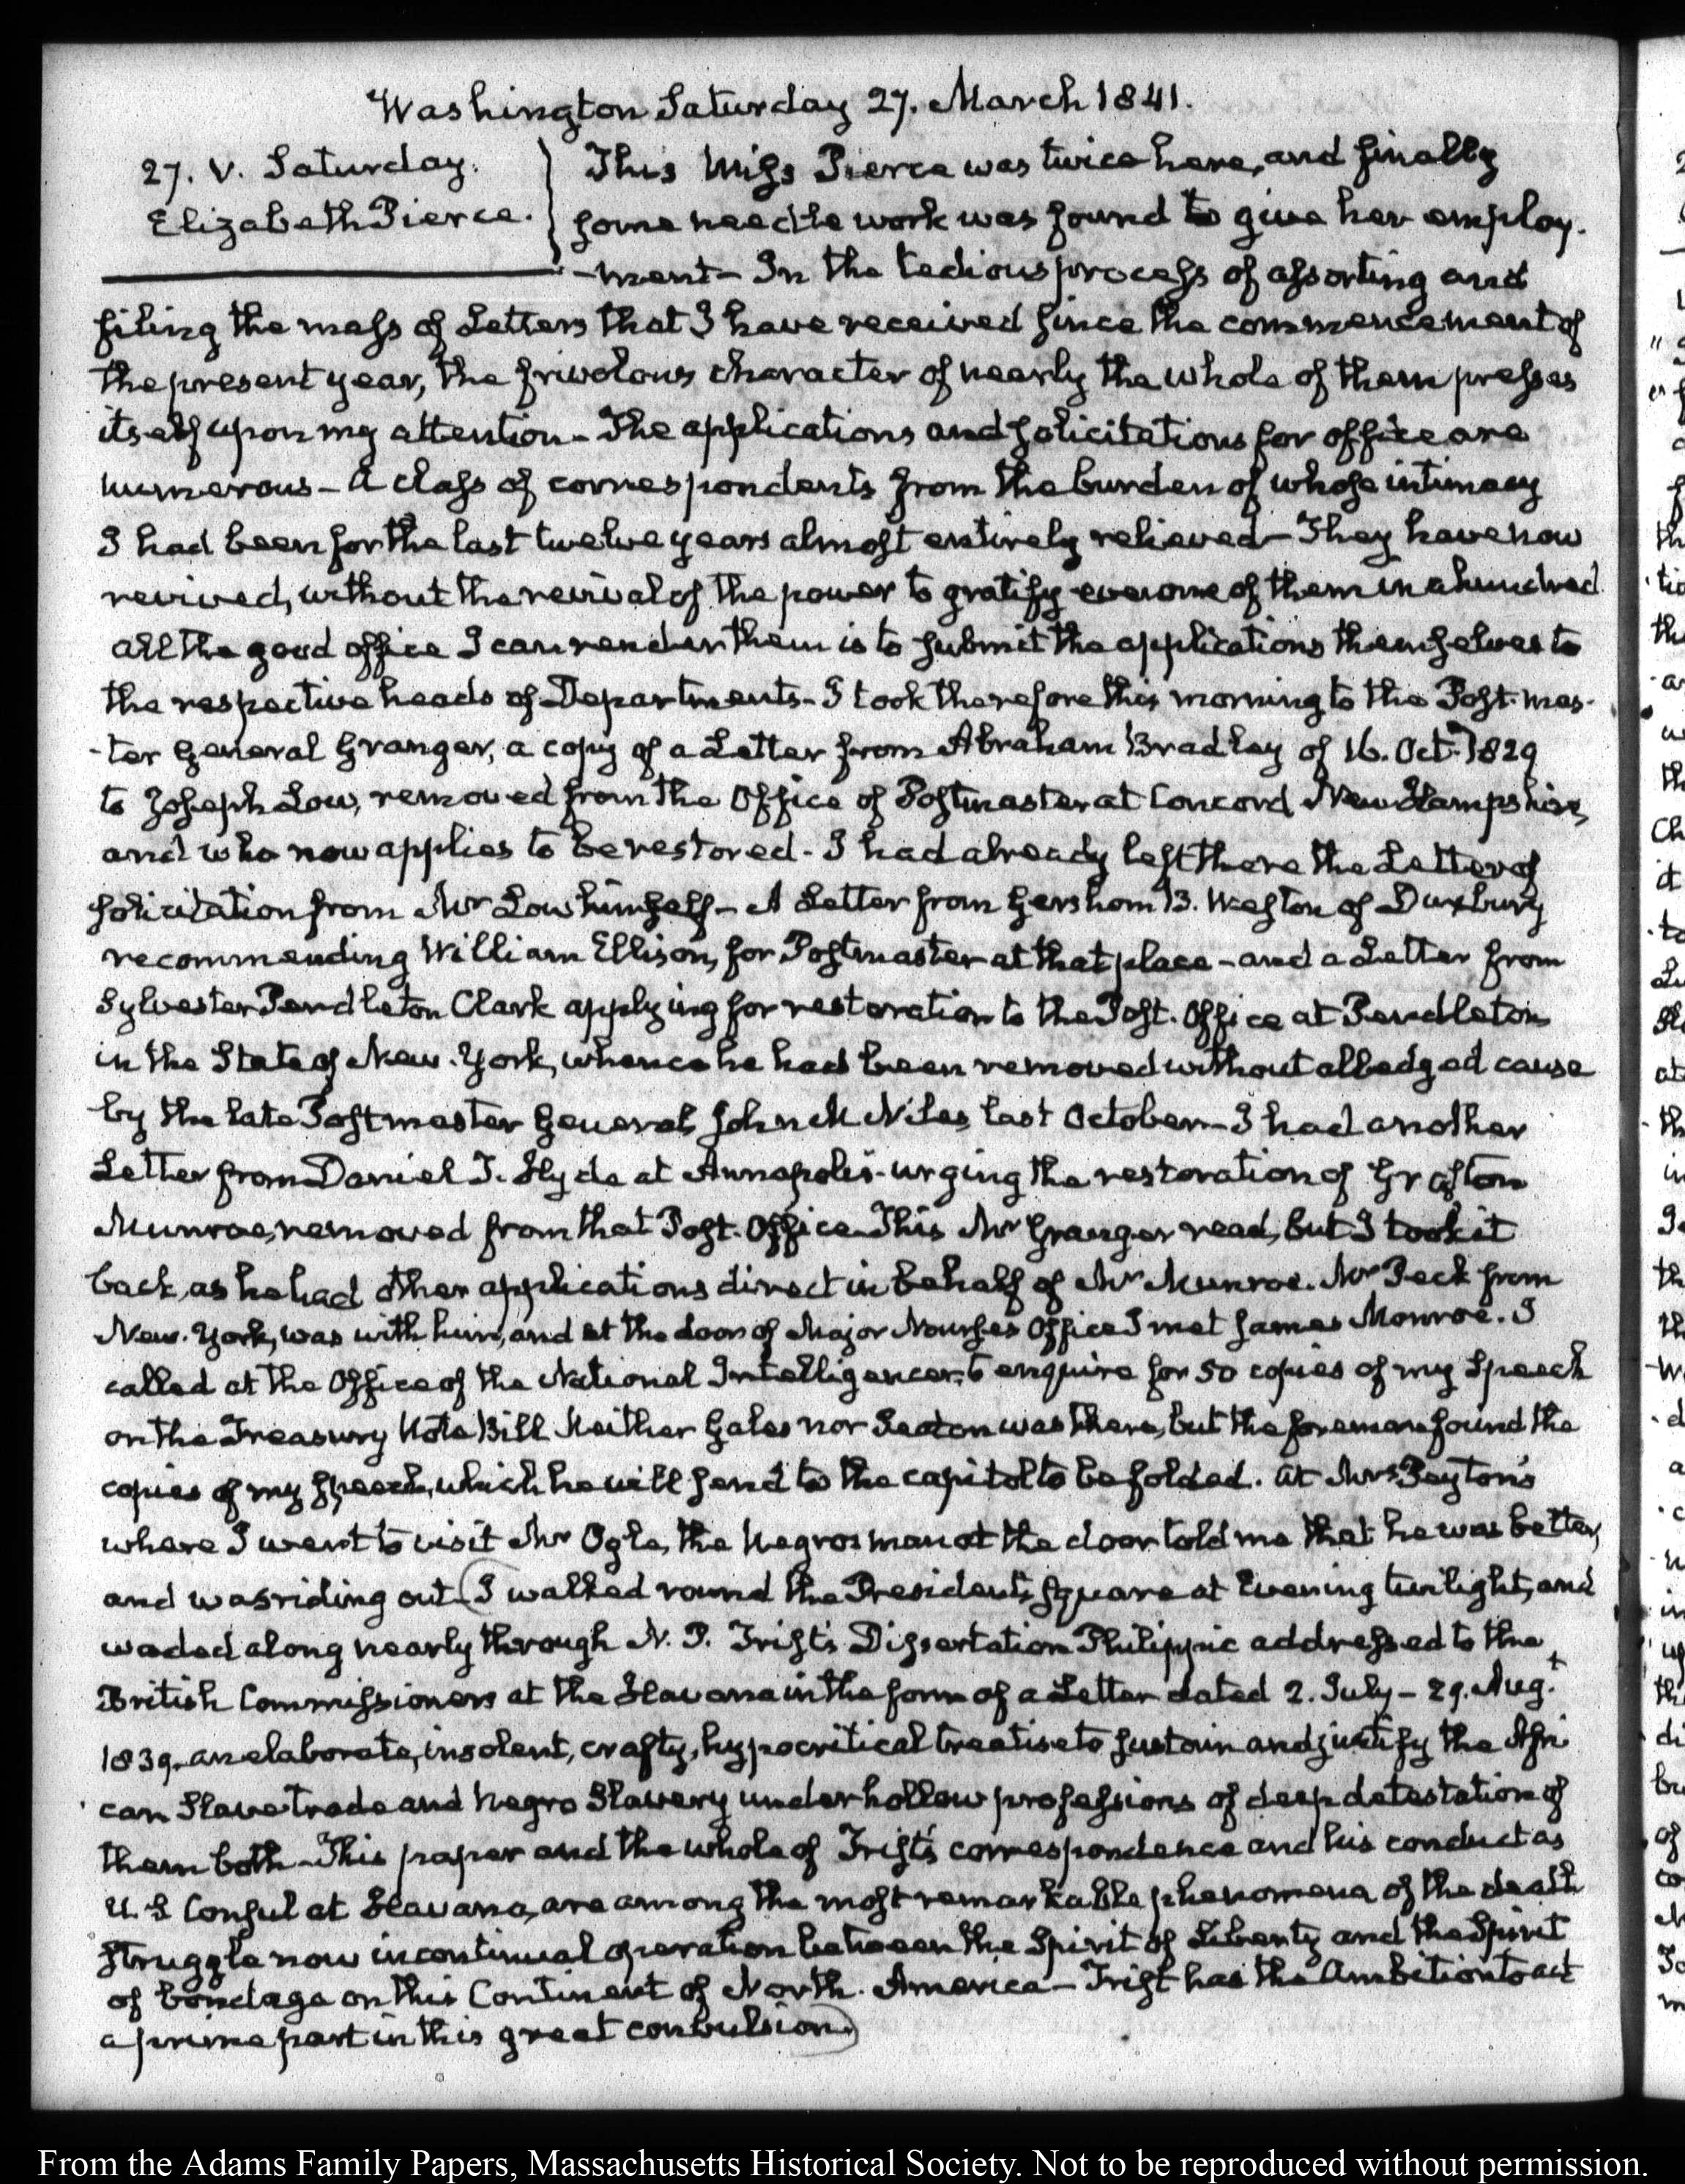 Washington Saturday 27. March 1841.
27. V. Saturday.
Elizabeth Pierce.
This Miss Pierce was twice here, and finally
some needle work was found to give her employ-
-ment- In the tedious process of assorting and
filing the mass of Letters that I have received since the commencement of
the present year, the frivolous character of nearly the whole of them presses
itself upon my attention- The applications and solicitations for office are
numerous- a class of correspondents from the burden of whose intimacy
I had been for the last twelve years almost entirely relieved- They have now
revived, without the revival of the power to gratify even one of them in a hundred
all the good office I can render them is to submit the applications themselves to
the respective heads of Departments- I took therefore this morning to the Post-mas-
-ter General Granger, a copy of a Letter from Abraham Bradley of 16. Oct. 1829
to Joseph Low, removed from the Office of Postmaster at Concord New Hampshire,
and who now applies to be restored- I had already left there the Letter of
solicitation from Mr Low himself- A Letter from Gershom B. Weston of Duxbury
recommending William Ellison, for Postmaster at that place- and a Letter from
Sylvester Pendleton Clark applying for restoration to the Post-Office at Pendleton
in the State of New-York, whence he had been removed without alledged cause
by the late Postmaster General John M Niles last October- I had another
Letter from Daniel T. Hyde at Annapolis- urging the restoration of Grafton
Munroe, removed from that Post-Office This Mr Granger read, but I took it
back, as he had other applications direct in behalf of Mr Munroe. Mr Peck from
New-York, was with him, and at the door of Major Nourse's Office I met James Monroe. I
called at the Office of the National Intelligencer, to enquire for 50 copies of my Speech
on the Treasury Note Bill Neither Gales nor Seaton was there, but the foreman found the
copies of my speech, which he will send to the capitol to be folded. At Mrs Peyton's
where I went to visit Mr Ogle, the Negro man at the door told me that he was better,
and was riding out (I walked round the President's square at Evening twilight, and
waded along nearly through N. P. Trist's Dissertation Philippic addressed to the
British Commissioners at the Havana in the form of a Letter dated 2. July- 29. Augt
1839. an elaborate, insolent, crafty, hypocritical treatise to sustain and justify the Afri
can Slave trade and Negro Slavery under hollow professions of deep detestation of
them both- This paper and the whole of Trist's correspondence and his conduct as
U. S Consul at Havana, are among the most remarkable phenomena of the death
struggle now in continual operation between the Spirit of Liberty and the Spirit
of bondage on this Continent of North-America- Trist has the Ambition to act
a prime part in this great convulsion.)
From the Adams Family Papers, Massachusetts Historical Society. Not to be reproduced without permission.